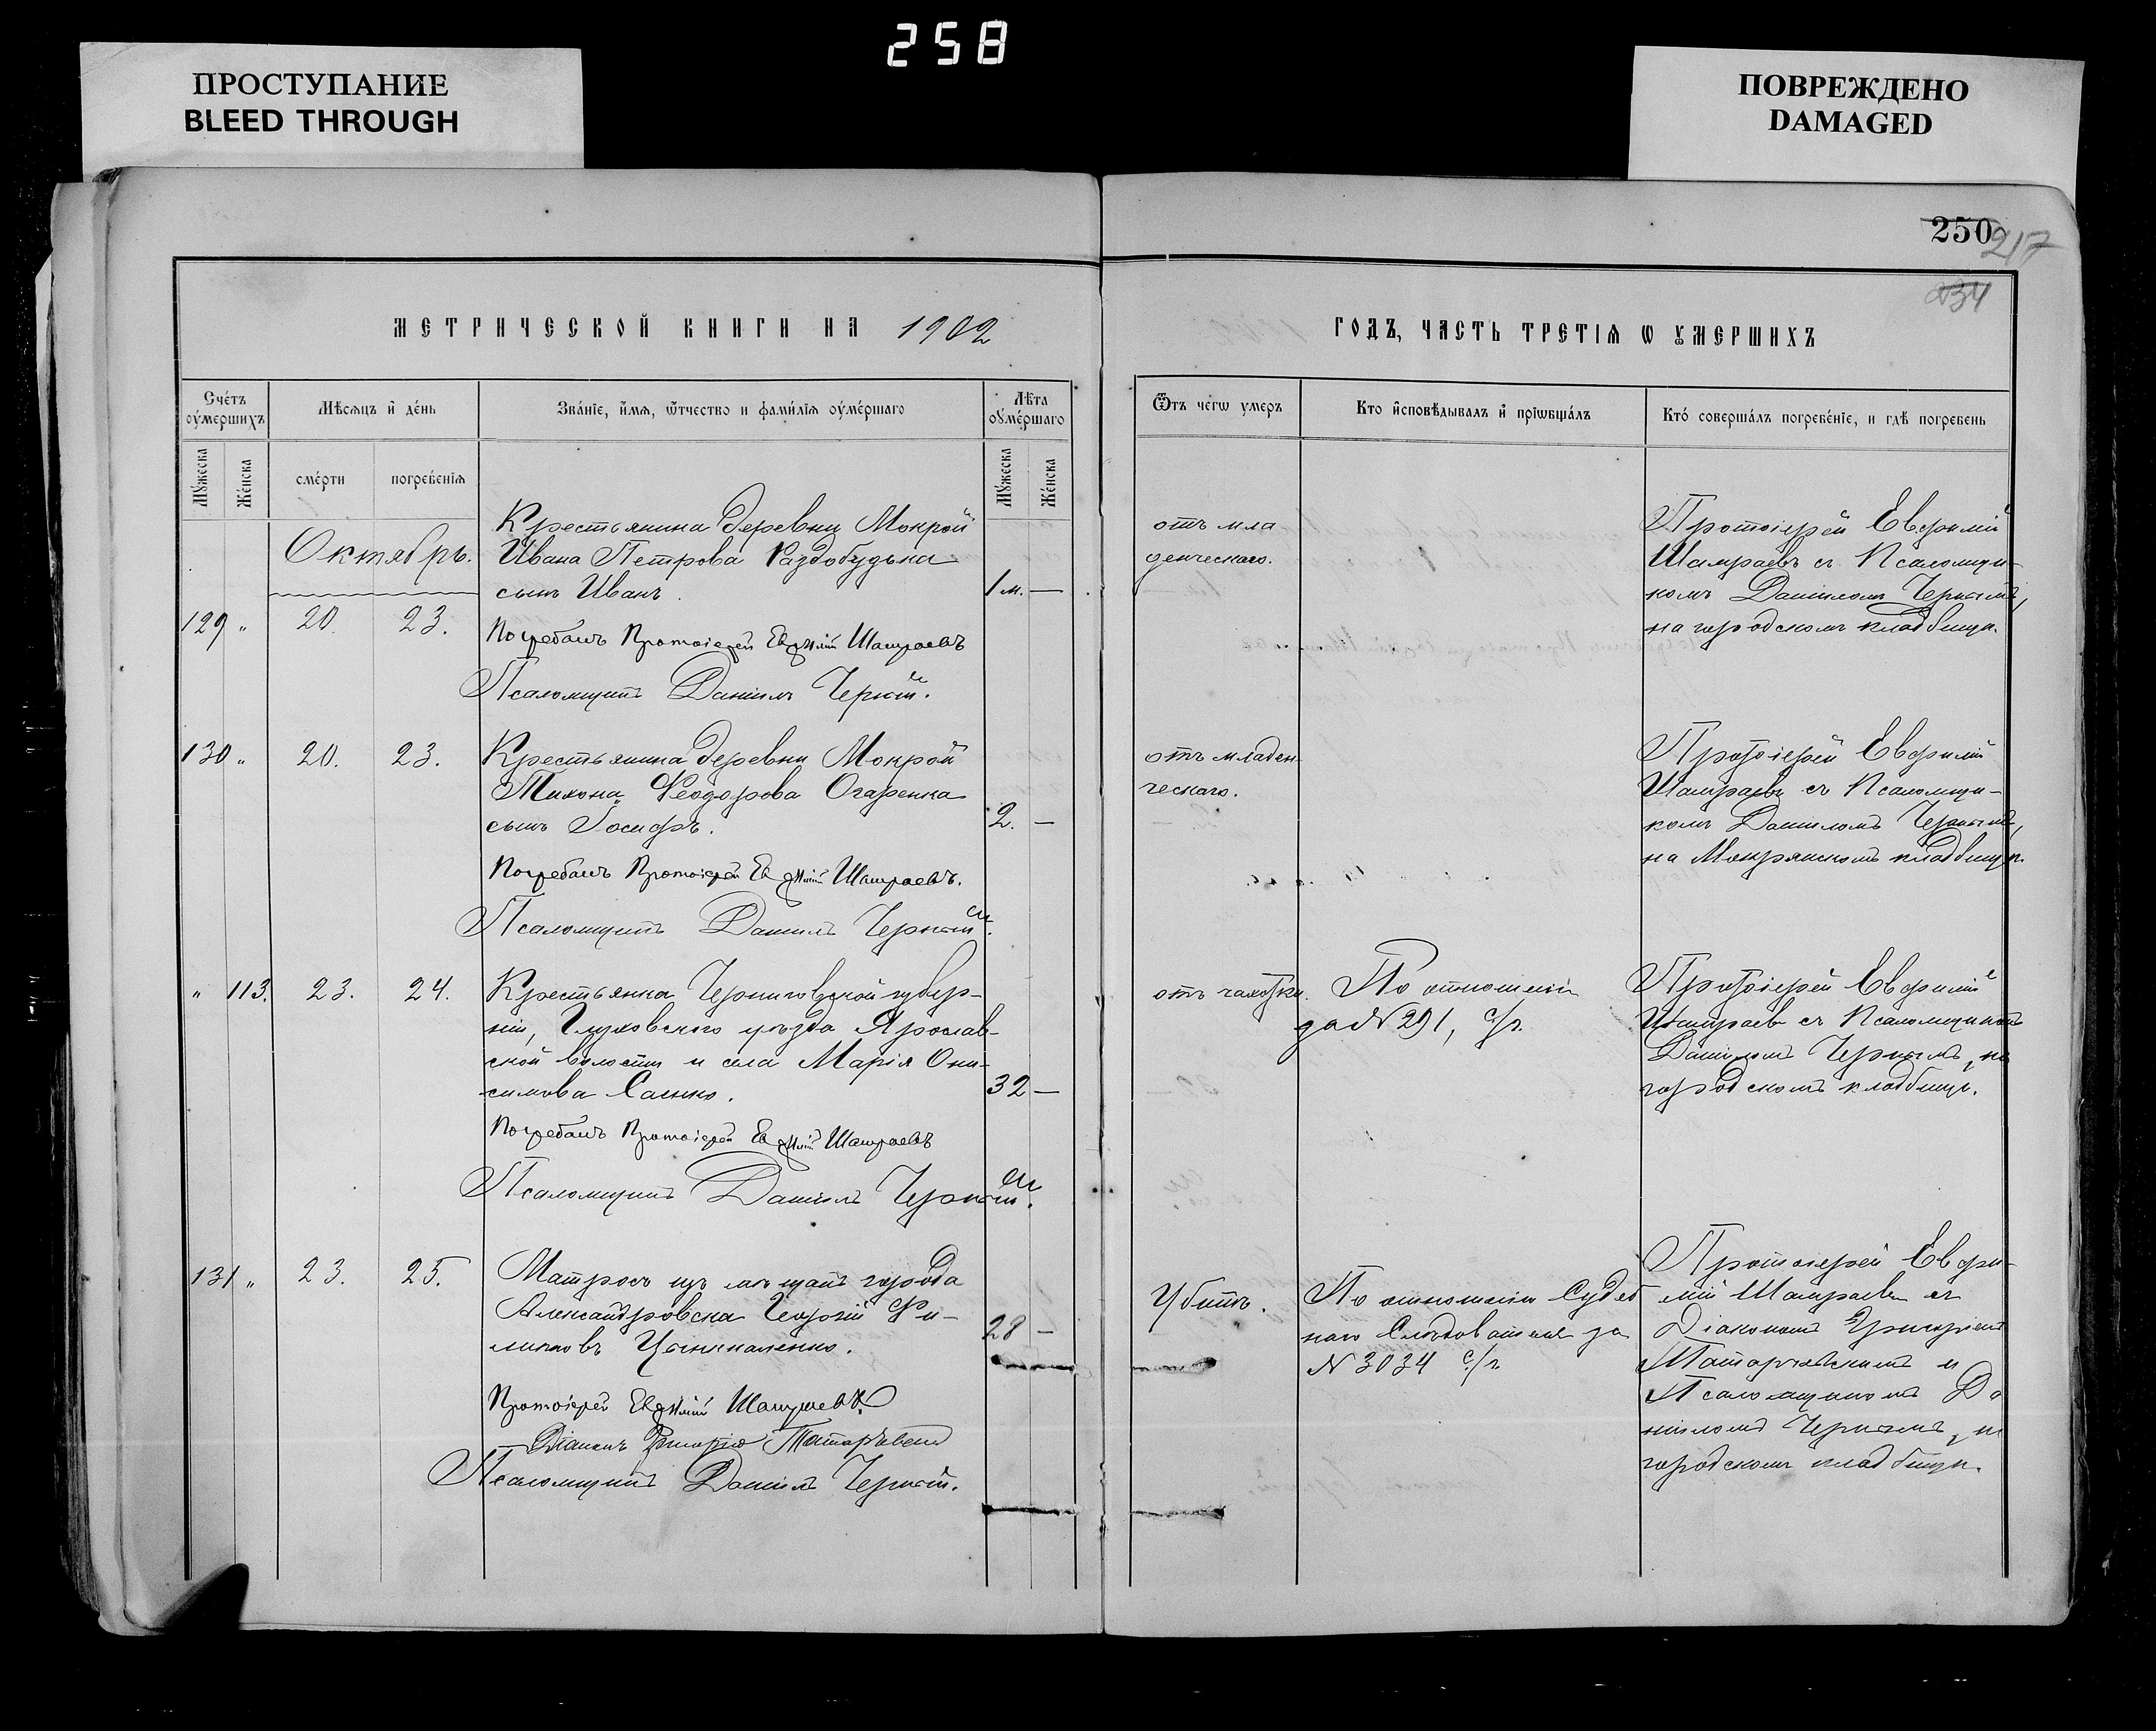 258
ПРОСТУПАНИЕ
BLEED THROUGH
ПОВРЕЖДЕНО
DAMAGED
250
217
234
МЕТРИЧЕСКОЙ КНИГИ НА 1902
ГОДЪ, ЧАСТЬ ТРЕТІѦ Ѡ ꙊМЕРШИХЪ
Счéтъ оу҆мершихъ
Мѣсяцъ и҆ де́нь
Зва́нїе, и҆́мя, ѿтчество и фами́лїя оу҆ме́ршаго
Лѣта оу҆ме́ршаго
Ѿтъ чегѡ умеръ
Кто и҆сповѣдывалъ и҆ прїѡбща́лъ
Кто́ соверша́лъ погребе́нїе, и гдѣ погребенъ
Му́жеска
Же́нска
сме́рти
погребе́нїя
Му́жеска
Же́нска
Октябрь.
129 " 20. 23.
Крестьянина деревни Мокрой
Ивана Петрова Раздобудька
сынъ Иванъ.
1 м. —
Погребалъ Протоіерей Евфимій Шамраевъ
Псаломщикъ Даніилъ Черный.
отъ мла
денческаго.
Протоіерей Евфимій
Шамраевъ съ Псаломщи-
комъ Даніиломъ Чернымъ,
на городскомъ кладбищѣ.
130 " 20. 23.
Крестьянина деревни Мокрой
Тихона Ѳеодорова Огаренка
сынъ Іосифъ.
2. —
Погребалъ Протоіерей Евфимій Шамраевъ.
Псаломщикъ Даніилъ Черный.
отъ младен-
ческаго.
Протоіерей Евфимій
Шамраевъ съ Псаломщи-
комъ Даніиломъ Чернымъ,
на Мокрянскомъ кладбищѣ.
" 113. 23. 24.
Крестьянка Черниговской губер-
ніи, Глуховскаго уѣзда Ярослав-
ской волости и села Марія Они-
симова
32 —
Погребалъ Протоіерей Евфимій Шамраевъ
Псаломщикъ Даніилъ Черный.
отъ чахотки.
По отношенію
за № 291, с/г.
Протоіерей Евфимій
Шамраевъ съ Псаломщикомъ
Даніиломъ Чернымъ, на
городскомъ кладбищѣ.
131 " 23. 25.
Матросъ изъ мѣщанъ города
Александровска Георгій Фи-
липповъ
28 —
Протоіерей Евфимій Шамраевъ.
Діаконъ Григорій
Псаломщикъ Даніилъ Черный.
Убитъ.
По отношенію Судеб
наго Слѣдователя за
№ 3034 с/г.
Протоіерей Евфи-
мій Шамраевъ съ
Діакономъ Григоріемъ
и
Псаломщикомъ Да
ніиломъ Чернымъ, на
городскомъ кладбищѣ.